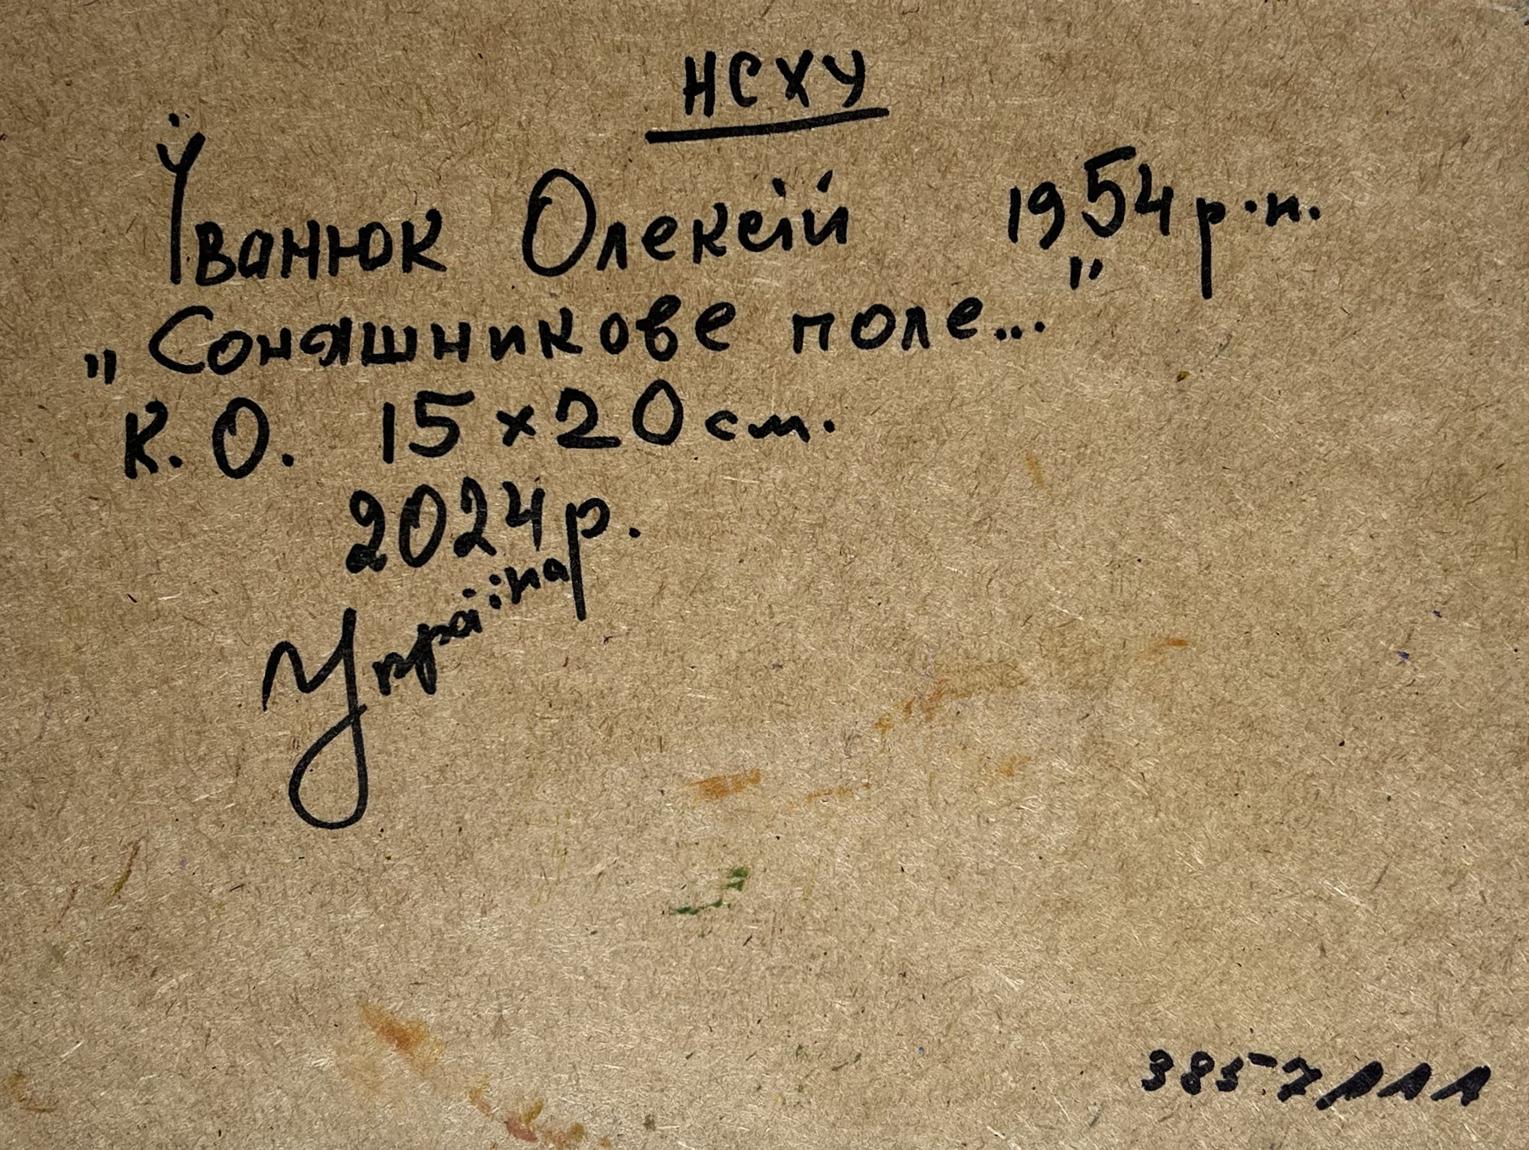 НСХУ
Іванюк Олексій 1954 р.н.
„Соняшникове поле..."
К.О. 15×20 см.
2024р.
Україна